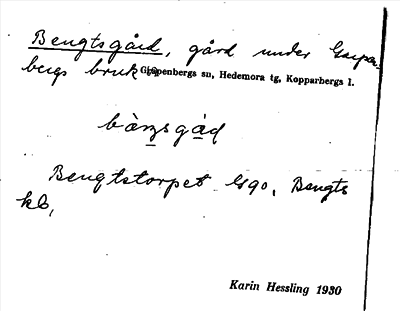 Bengtsgård, gård under Garpen-
bergs bruk
Garpenbergs sn, Hedemora tg, Kopparbergs l.
bàŋsgåd
Bengtstorpet Ggo, Bengts
kb,
Karin Hessling 1930